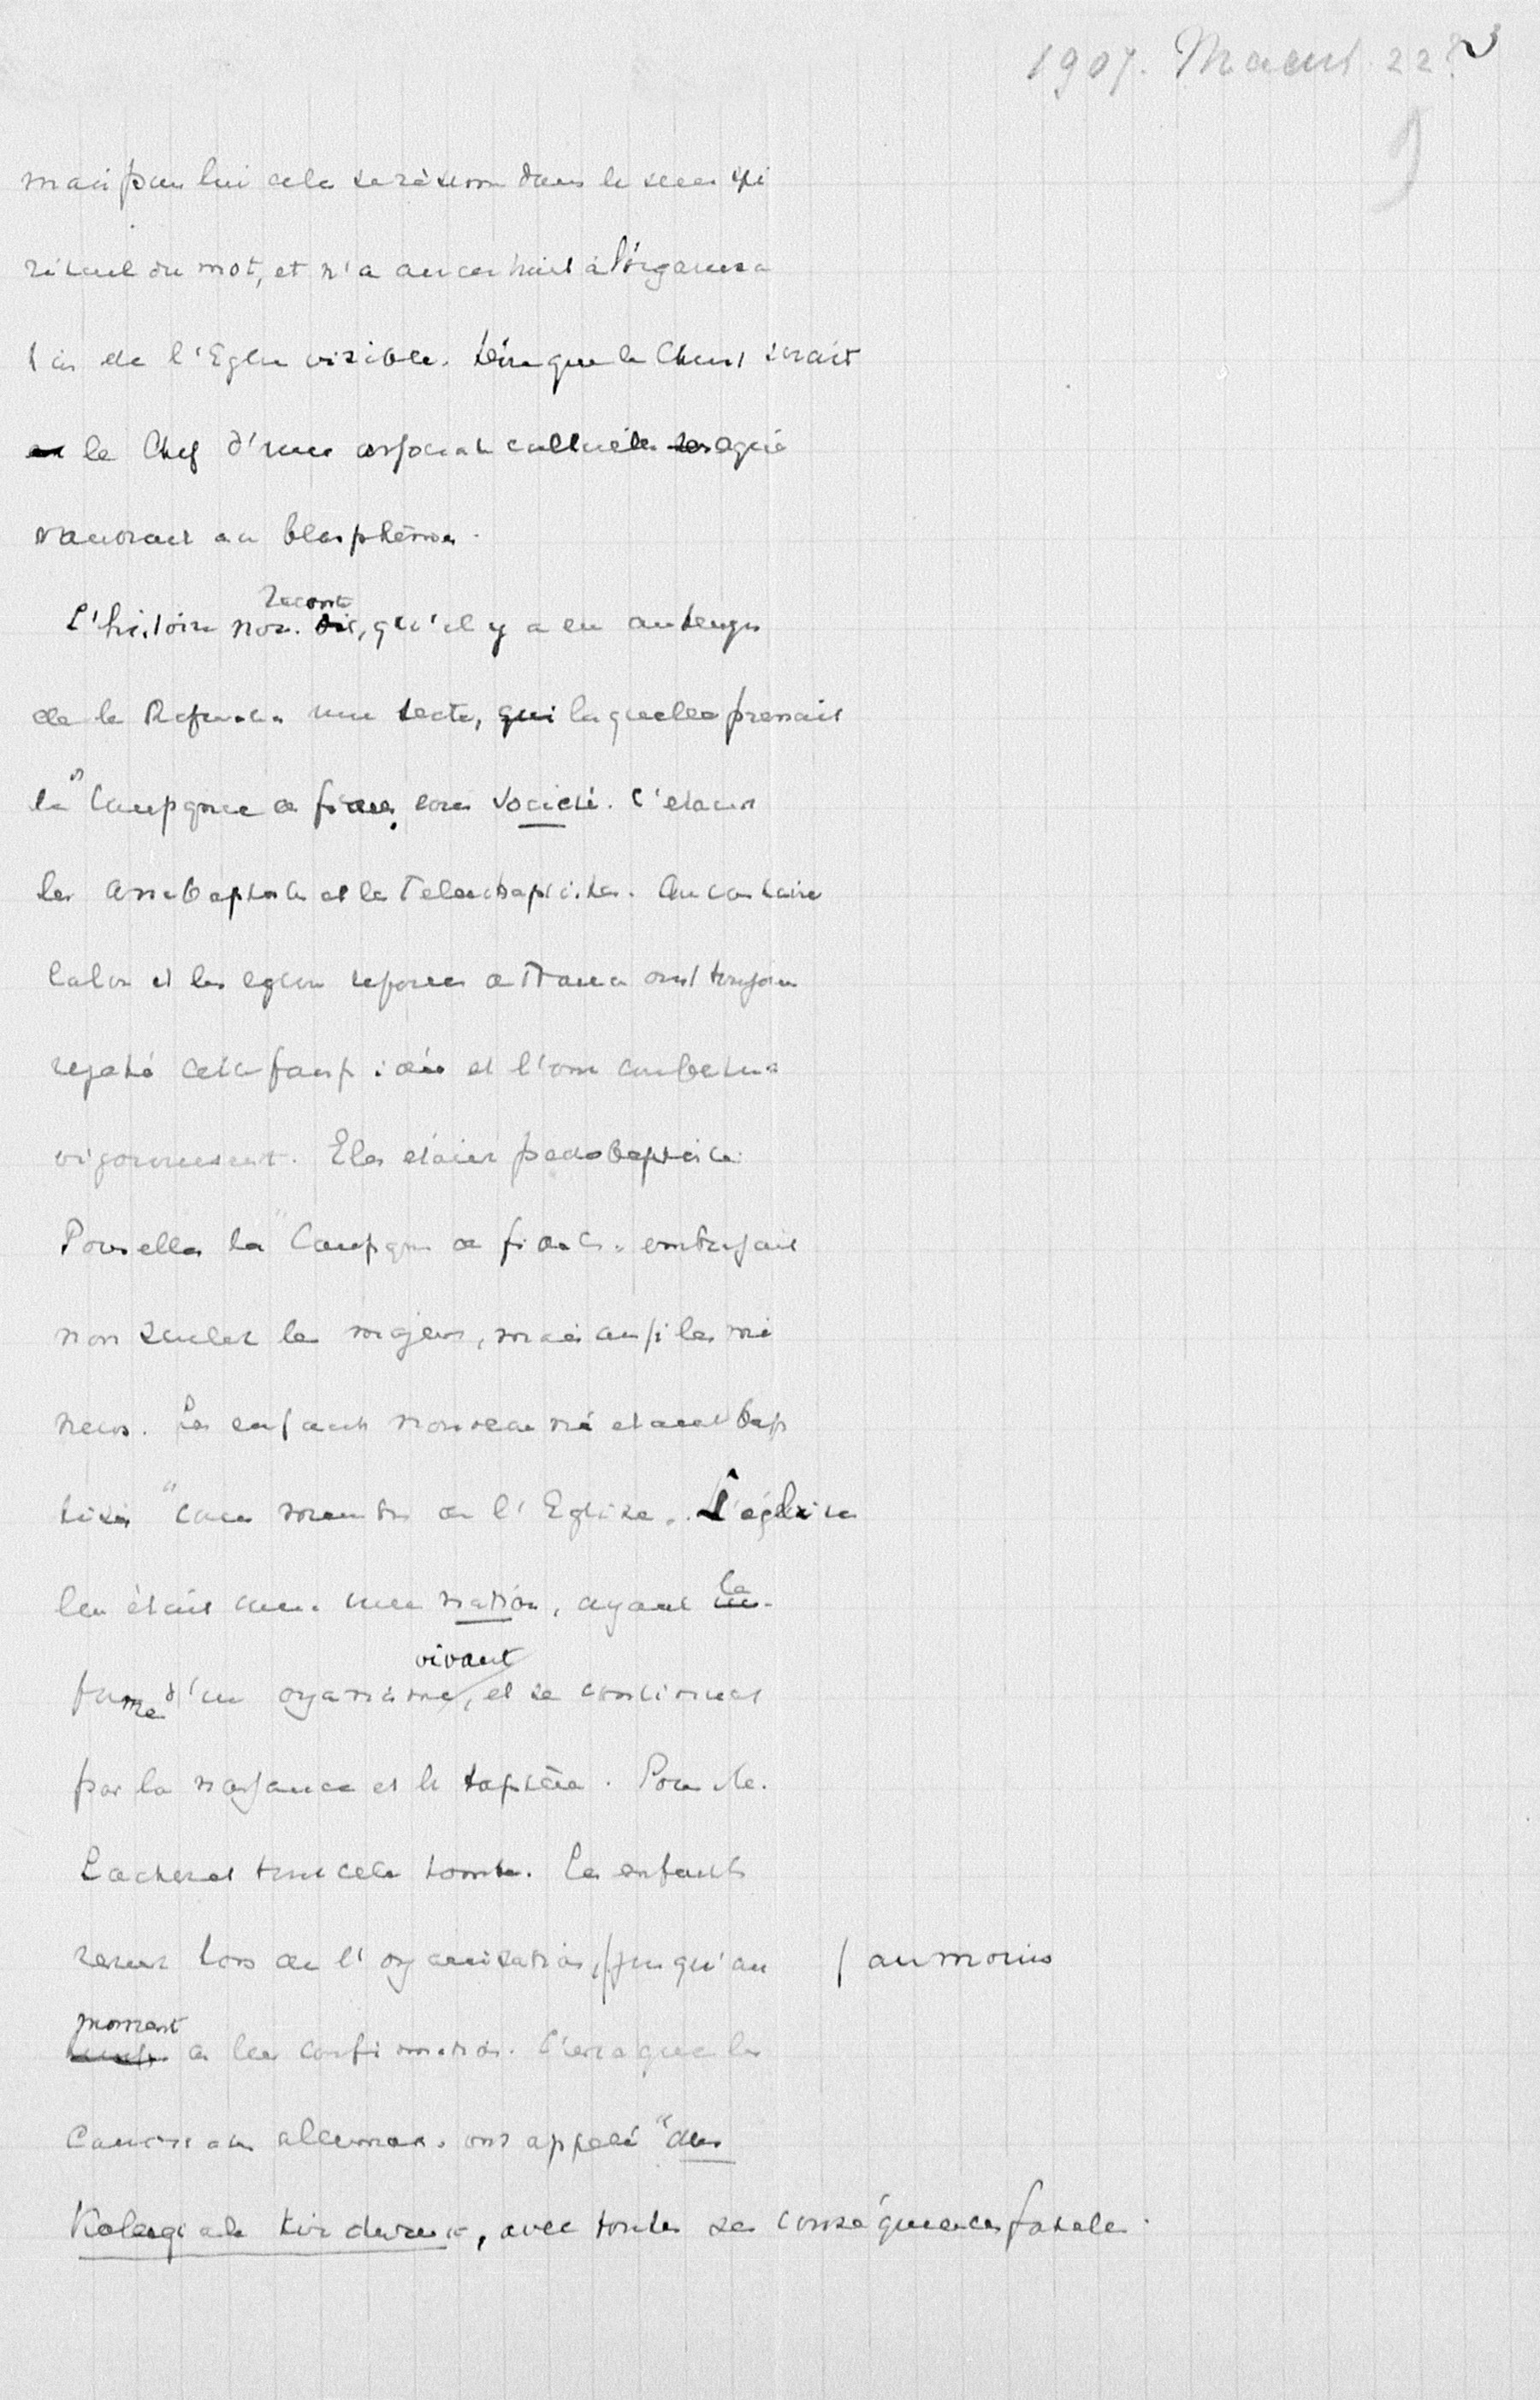 1907. Maart 22?
9
mais pour lui cela se résume dans le sens spi
rituel du mot, et n'a aucun trait à l'organisa
tion de l'Eglise visible. Dire que le Christ serait
le Chef d'une associat cultuelle equi
vaudrait au blasphème.
raconte
L'histoire nous dit, qu'il y a eu au temps
de la Reformation une secte, qui laquelle prenait
la "Compagnie de fidèles" comme société. C'étaient
les Anabaptistes et les Teleiobaptistes. Au contraire
Calvin et les églises reformées de France ont toujours
rejeté cette fausse idée et l'ont combattue
vigoureusement. Elles étaient pedobaptistes.
Pour elles la "Compagnie de fidèles" embrassait
non seulement les majeurs, mais aussi les mi
neurs. Les enfants nouveau nés étaient bap
tisés "comme membres de l'Eglise". L'église
leur était comme une nation, ayant la
vivant
forme d'un organisme, et se continuant
par la naissance et le baptême. Pour M.
Lacheret tout cela tombe. Les enfants
restent hors de l'organisation, / jusqu'au / au moins
moment
de leur confirmation. C'est ce que les
Canonistes allemands ont appelé "das
Kolegiale Kirchenrecht, avec toutes ses conséquences fatales.